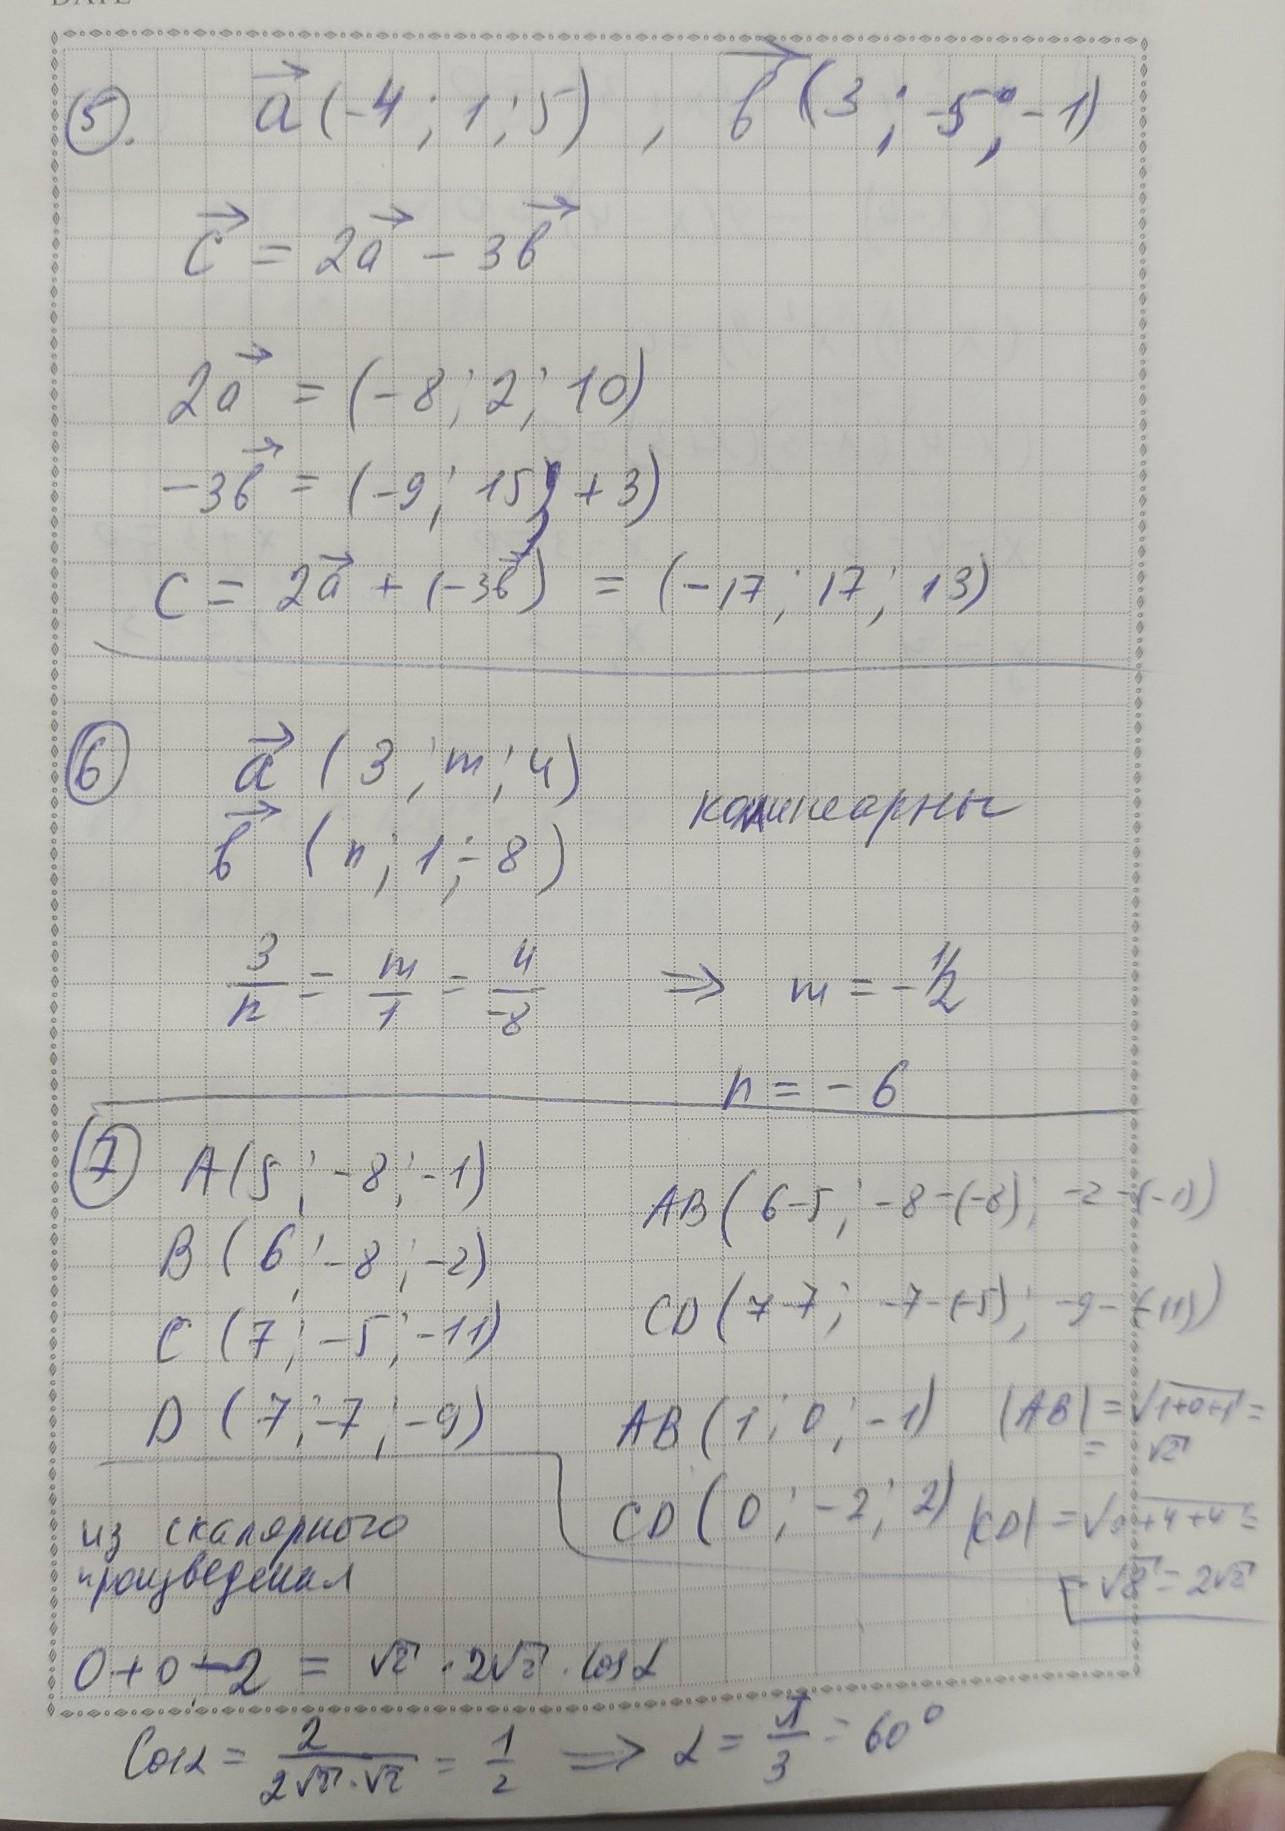 DATE
5. a⃗ (-4 ; 1 ; 5) , b⃗ (3 ; -5 ; -1)
c⃗ = 2a⃗ - 3b⃗
2a⃗ = (-8 ; 2 ; 10)
-3b⃗ = (-9 ; 15 ; +3)
C = 2a⃗ + (-3b⃗) = (-17 ; 17 ; 13)
6 a⃗ (3 ; m ; 4)
коллинеарны
b⃗ (n ; 1 ; -8)
3/n = m/1 = 4/-8 ⇒ m = -1/2
n = -6
7 A(5 ; -8 ; -1)
B (6 ; -8 ; -2)
C (7 ; -5 ; -11)
D (7 ; -7 ; -9)
AB (6-5 ; -8-(-8) ; -2-(-1))
CD (7-7 ; -7-(-5) ; -9-(-11))
AB (1 ; 0 ; -1) |AB| = √1+0+1 =
= √2
CD (0 ; -2 ; 2) |CD| = √0+4+4 =
= √8 = 2√2
из скалярного
произведения
0+0-2 = √2 · 2√2 · cos α
Cos α = 2/2√2·√2 = 1/2 ⇒ α = π/3 = 60°